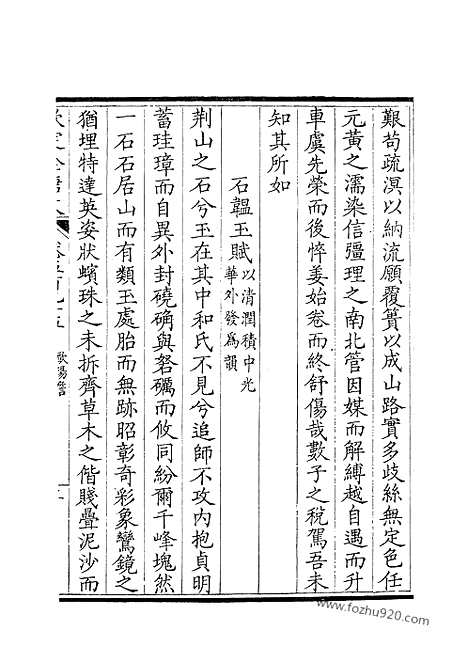 艱苟疏溟以納流願覆簣以成山路實多歧絲無定色任
元黃之濡染信彊理之南北管因媒而解縛越自遇而升
車虞先榮而後悴姜始卷而終舒傷哉數子之稅駕吾未
知其所如
石韞玉賦以清潤積中光
華外發為韻
荆山之石兮玉在其中和氏不見兮追師不攻內抱貞明
蓄珪璋而自異外封磽确與砮礪而攸同紛爾千峰塊然
一石石居山而有類玉處胎而無跡昭彰奇彩象鸞鏡之
猶埋特達英姿狀蠙珠之未拆齊草木之偕賤疊泥沙而
欽定全唐文
卷五百九十五
歐陽詹
www.fozhu920.com